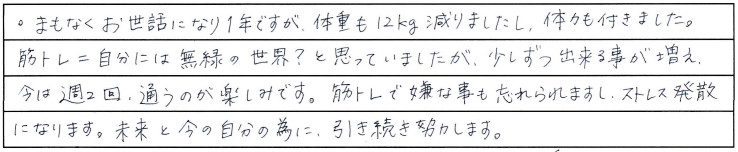 。まもなくお世話になり1年ですが、体重も12kg減りましたし、体力も付きました。
筋トレ＝自分には無縁の世界？と思っていましたが、少しずつ出来る事が増え、
今は週2回、通うのが楽しみです。筋トレで嫌な事も忘れられますし、ストレス発散
になります。未来と今の自分の為に、引き続き努力します。